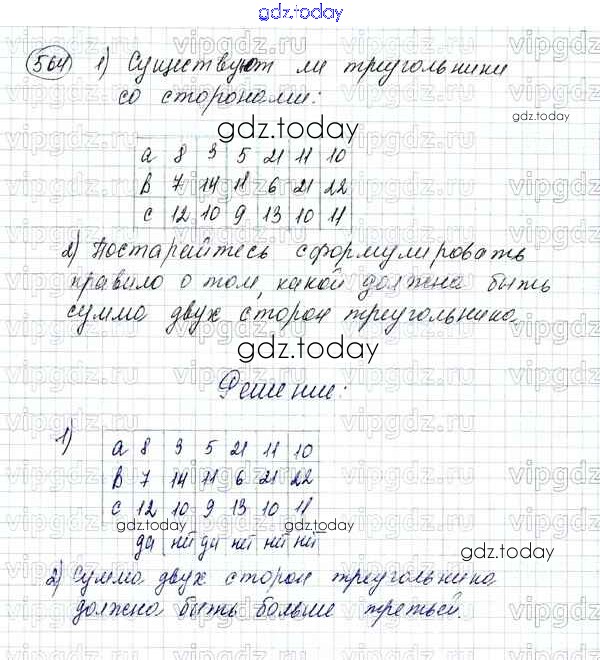 gdz.today
564 1) Существуют ли треугольники
со сторонами:
gdz.today
gdz.today
a 8 3 5 21 11 10
b 7 14 11 6 21 22
c 12 10 9 13 10 11
2) Постарайтесь сформулировать
правило о том, какой должна быть
сумма двух сторон треугольника.
gdz.today
Решение:
1)
a 8 3 5 21 11 10
b 7 14 11 6 21 22
c 12 10 9 13 10 11
gdz.today gdz.today
да нет да нет нет нет
gdz.today
2) Сумма двух сторон треугольника
должна быть больше третьей.